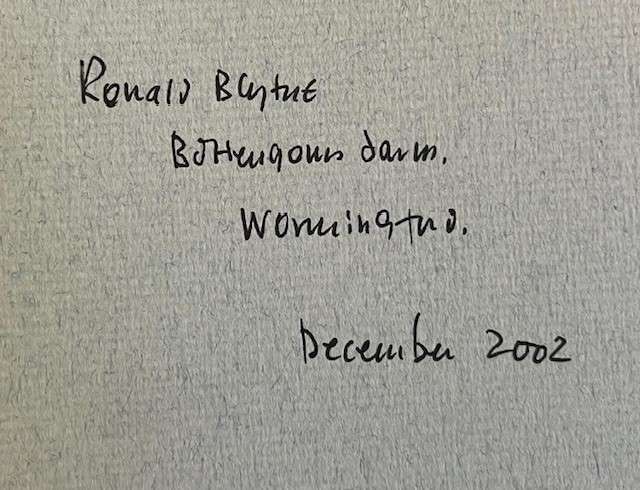 Ronald Blythe
Bottengoms Farm,
Wormingford.
December 2002